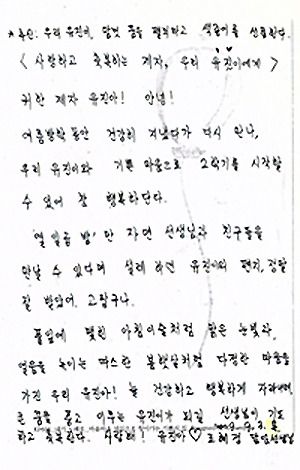 우리 유진이, 맘껏 꿈을 펼치라고 색종이를 선물한다.
< 사랑하고 축복하는 제자, 우리 유진이에게 >
귀한 제자 유진아! 안녕!
여름방학동안 건강히 지냈다가 다시 만나,
우리 유진이와 기쁜 마음으로 2학기를 시작할
수 있어 참 행복하단다.
"열 밤만 자면 선생님과 친구들을
만날 수 있다며 설레 하던 유진이의 편지, 정말
잘 받았어. 고맙구나.
풀잎에 맺힌 아침이슬처럼 맑은 눈빛과,
얼음을 녹이는 따스한 봄햇살처럼 다정한 마음을
가진 우리 유진아! 늘 건강하고 행복하게 자라나며
큰 꿈을 품고 이루는 유진이가 되길 선생님이 기도
하고 축복한다. 사랑해! 유진아♡ 담임선생님